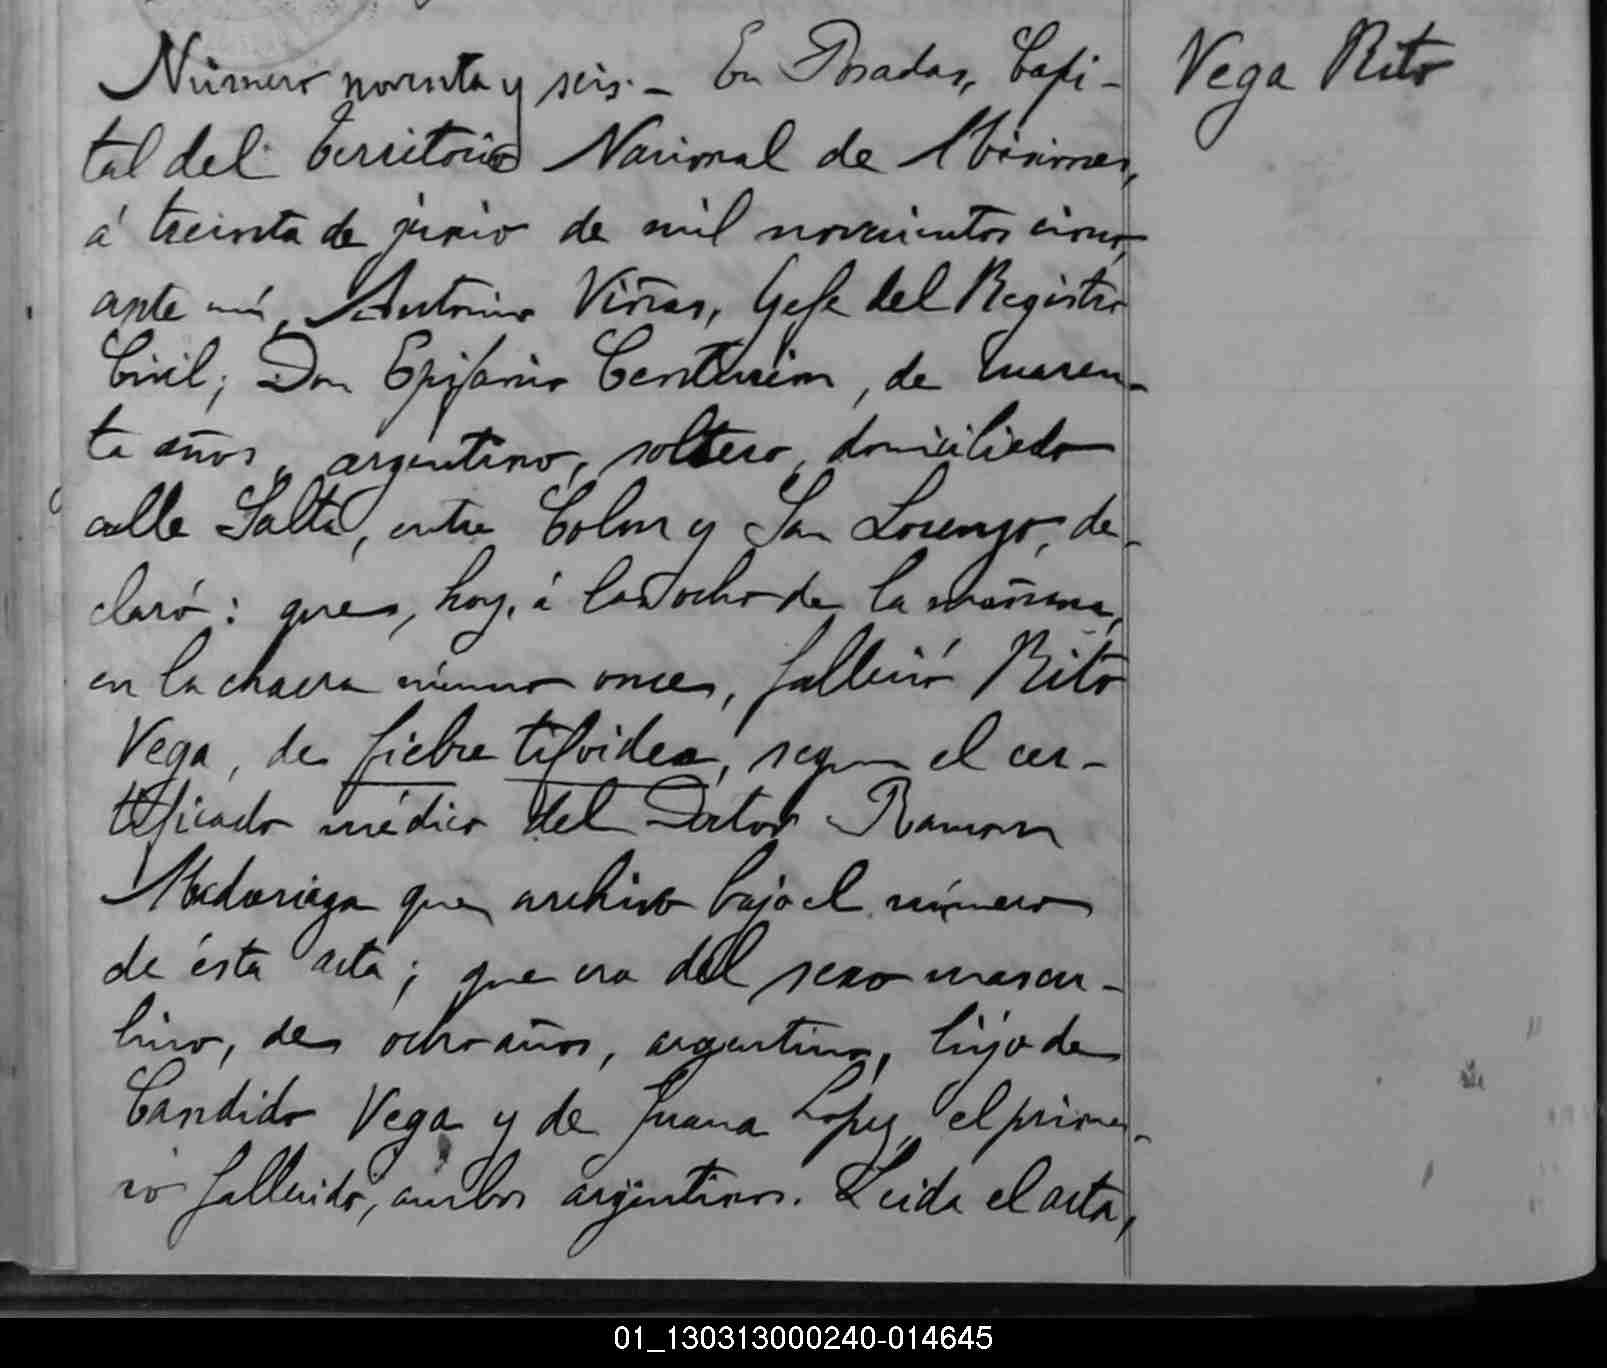 Número noventa y seis.- En Posadas, Capi-
Vega Rito
tal del Territorio Nacional de Misiones,
á treinta de junio de mil novecientos cinco,
ante mí, Antonino Viñas, Gefe del Registro
Civil; Don Epifanio Centurion, de cuaren-
ta años, argentino, soltero, domiciliado
calle Salta, entre Colon y San Lorenzo, de-
claró: que, hoy, á las ocho de la mañana,
en la chacra número once, falleció Rito
Vega, de fiebre tifoidea, segun el cer-
tificado médico del Doctor Ramon
Madariaga que archivo bajo el número
de ésta acta; que era del sexo mascu-
lino, de ocho años, argentino, hijo de
Candido Vega y de Juana Lopez, el prime-
ro fallecido, ambos argentinos. Leida el acta,
01_130313000240-014645